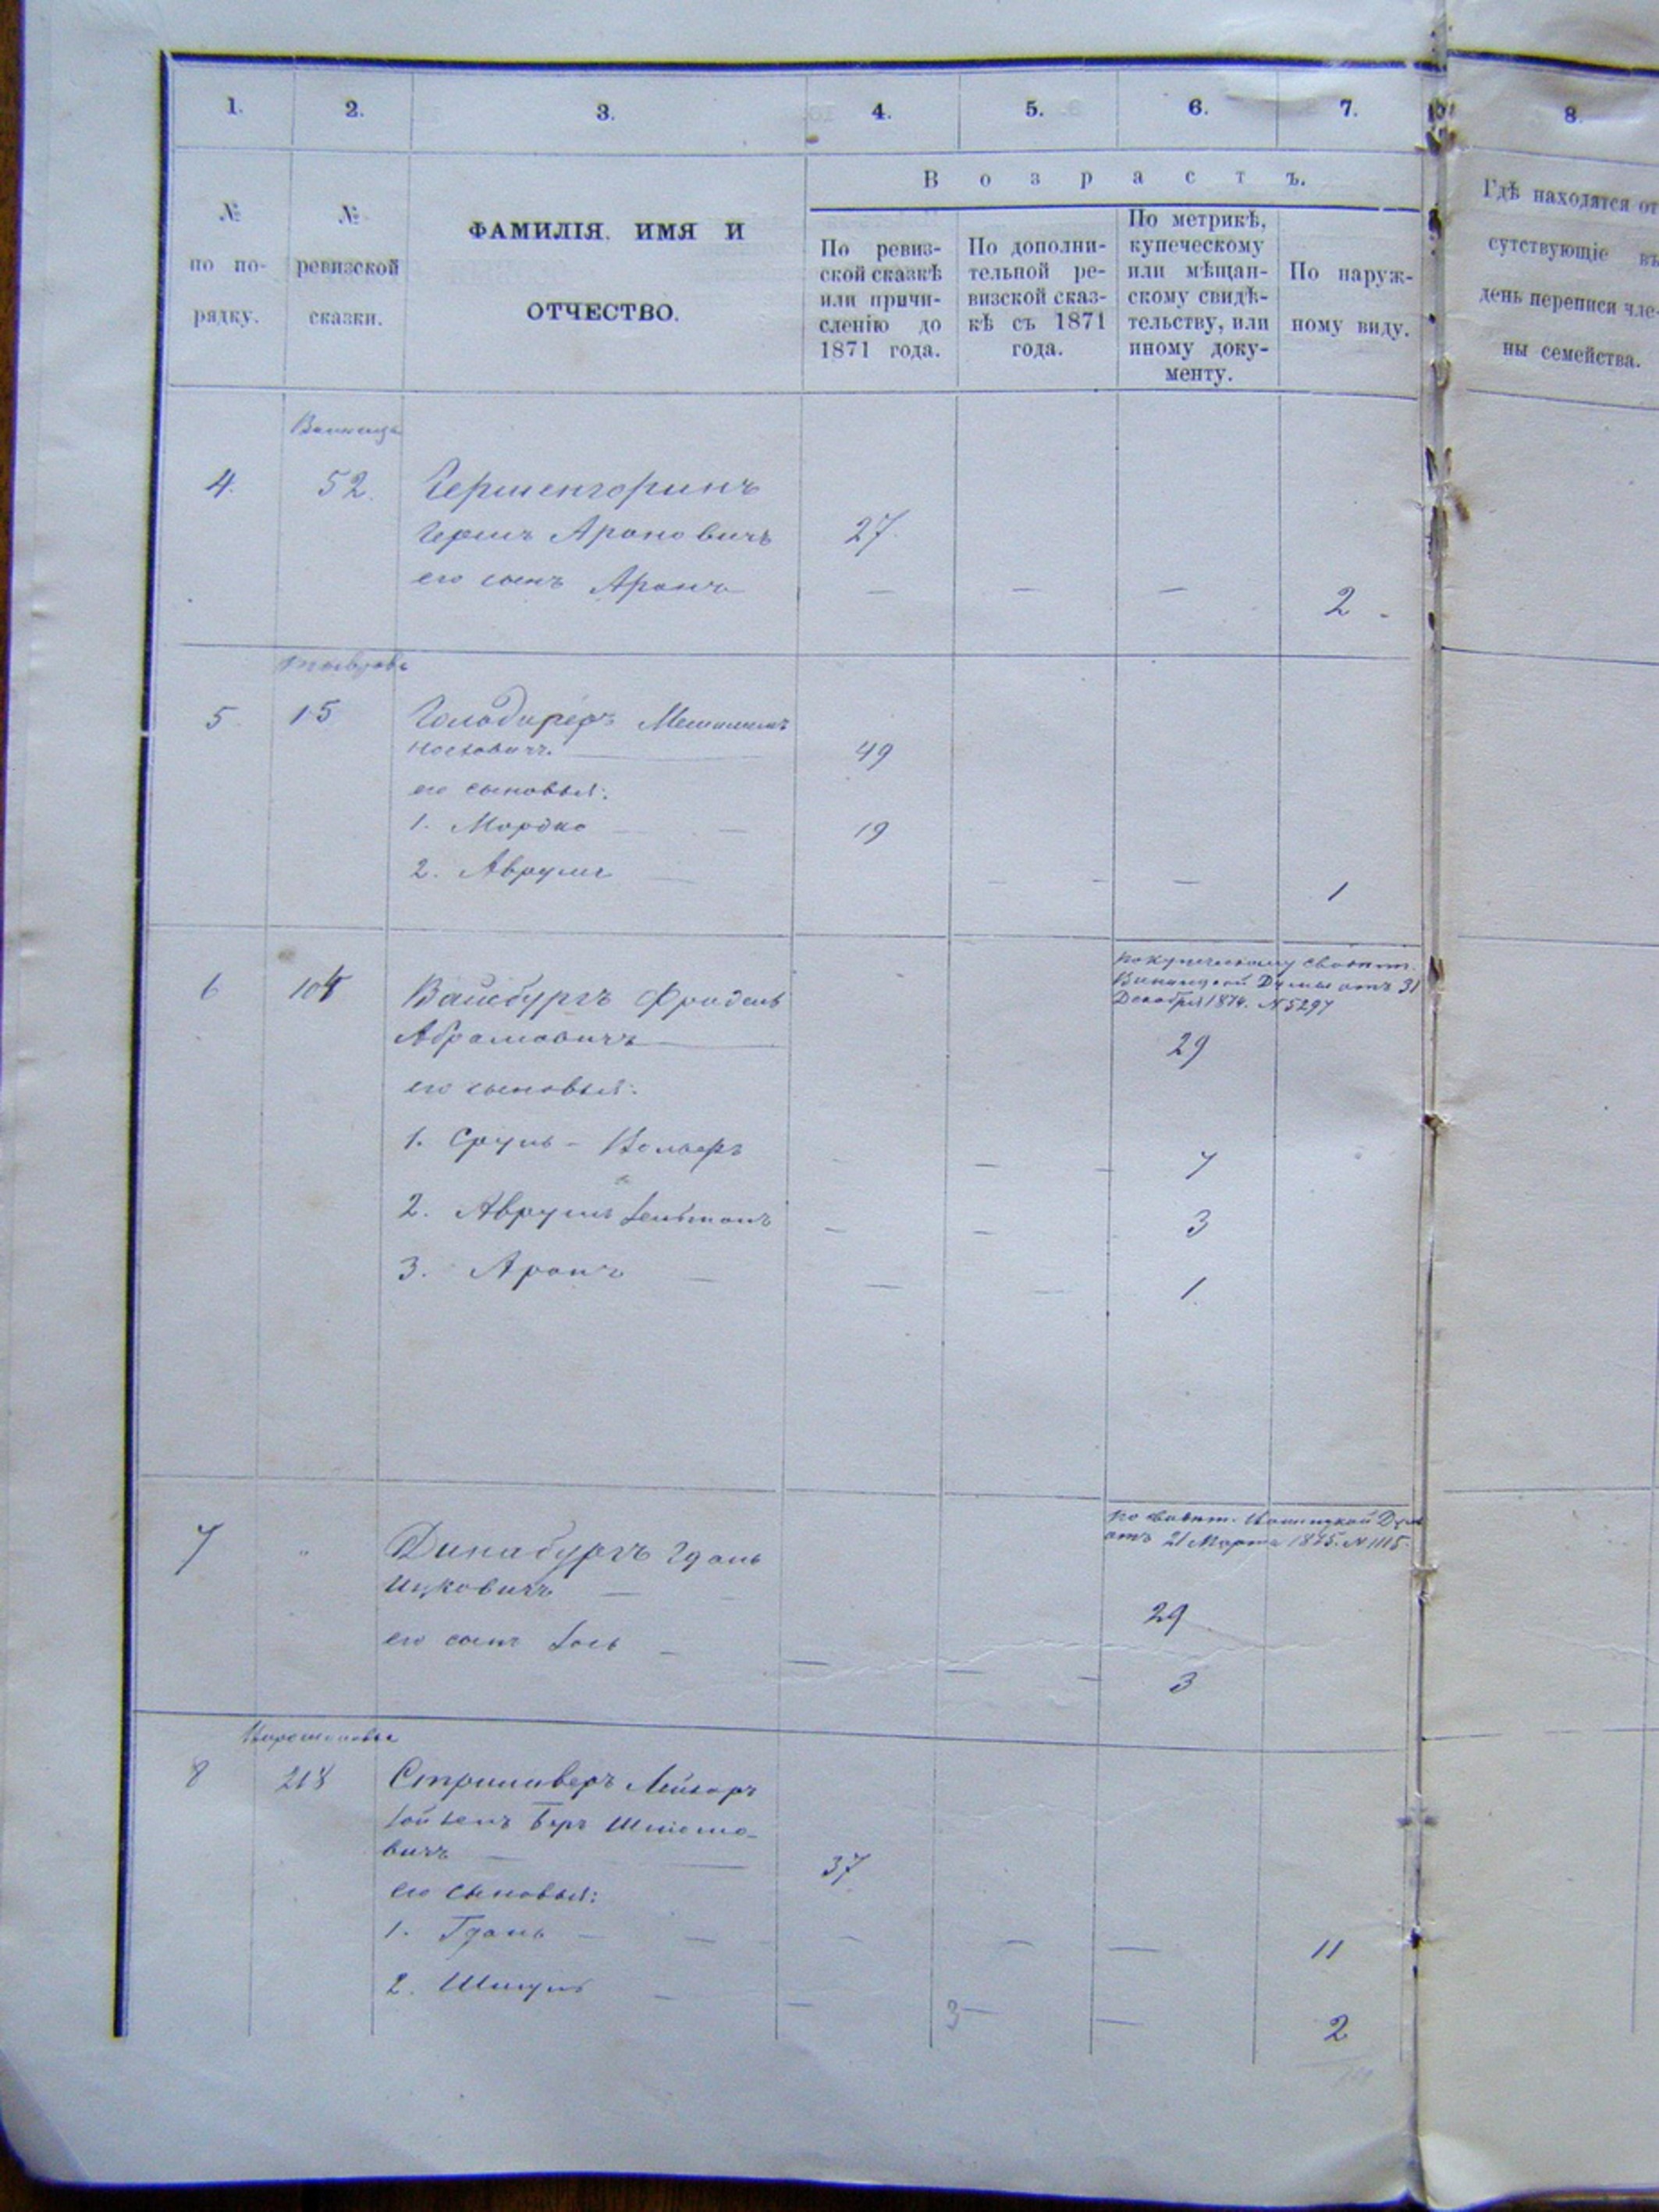 1. 2. 3. 4. 5. 6. 7. 8.
№ по по-рядку.
№ ревизской сказки.
ФАМИЛІЯ. ИМЯ И
ОТЧЕСТВО.
Возрастъ.
По ревиз-
ской сказкѣ
или причи-
сленію до
1871 года.
По дополни-
тельной ре-
визской сказ-
кѣ съ 1871
года.
По метрикѣ,
купеческому
или мѣщан-
скому свидѣ-
тельству, или
иному доку-
менту.
По наруж-
ному виду.
Гдѣ находятся от
сутствующіе въ
день переписи чле-
ны семейства.
Винница
4. 52. Гершенгоринъ
Гершъ Ароновичъ 27
его сынъ Аронъ — — — 2
Тывровъ
5 15 Голодиреръ
49
его сыновья:
1. Мордко — — 19
2. Аврумъ — — — — 1
6 104 Вайсбургъ Фроделъ
Абрамовичъ
по купеческому свидѣт.
Винницкой Думы отъ 31
Декабря 1874. № 5297
29
его сыновья:
1. Сруль – Вольфъ — — — 7
2. Аврумъ — — 3
3. Аронъ — — — 1
7 " Динабургъ Гдаль
Ицковичъ —
по свидѣт. Винницкой Думы
отъ 21 Марта 1875. № 1115
29
его сынъ — — — — 3
8 218 Лейзоръ
Беръ Шліомо-
вичъ — 37
его сыновья:
1. Гдаль — — — — — 11
2. Шмуль — — 3 — — 2